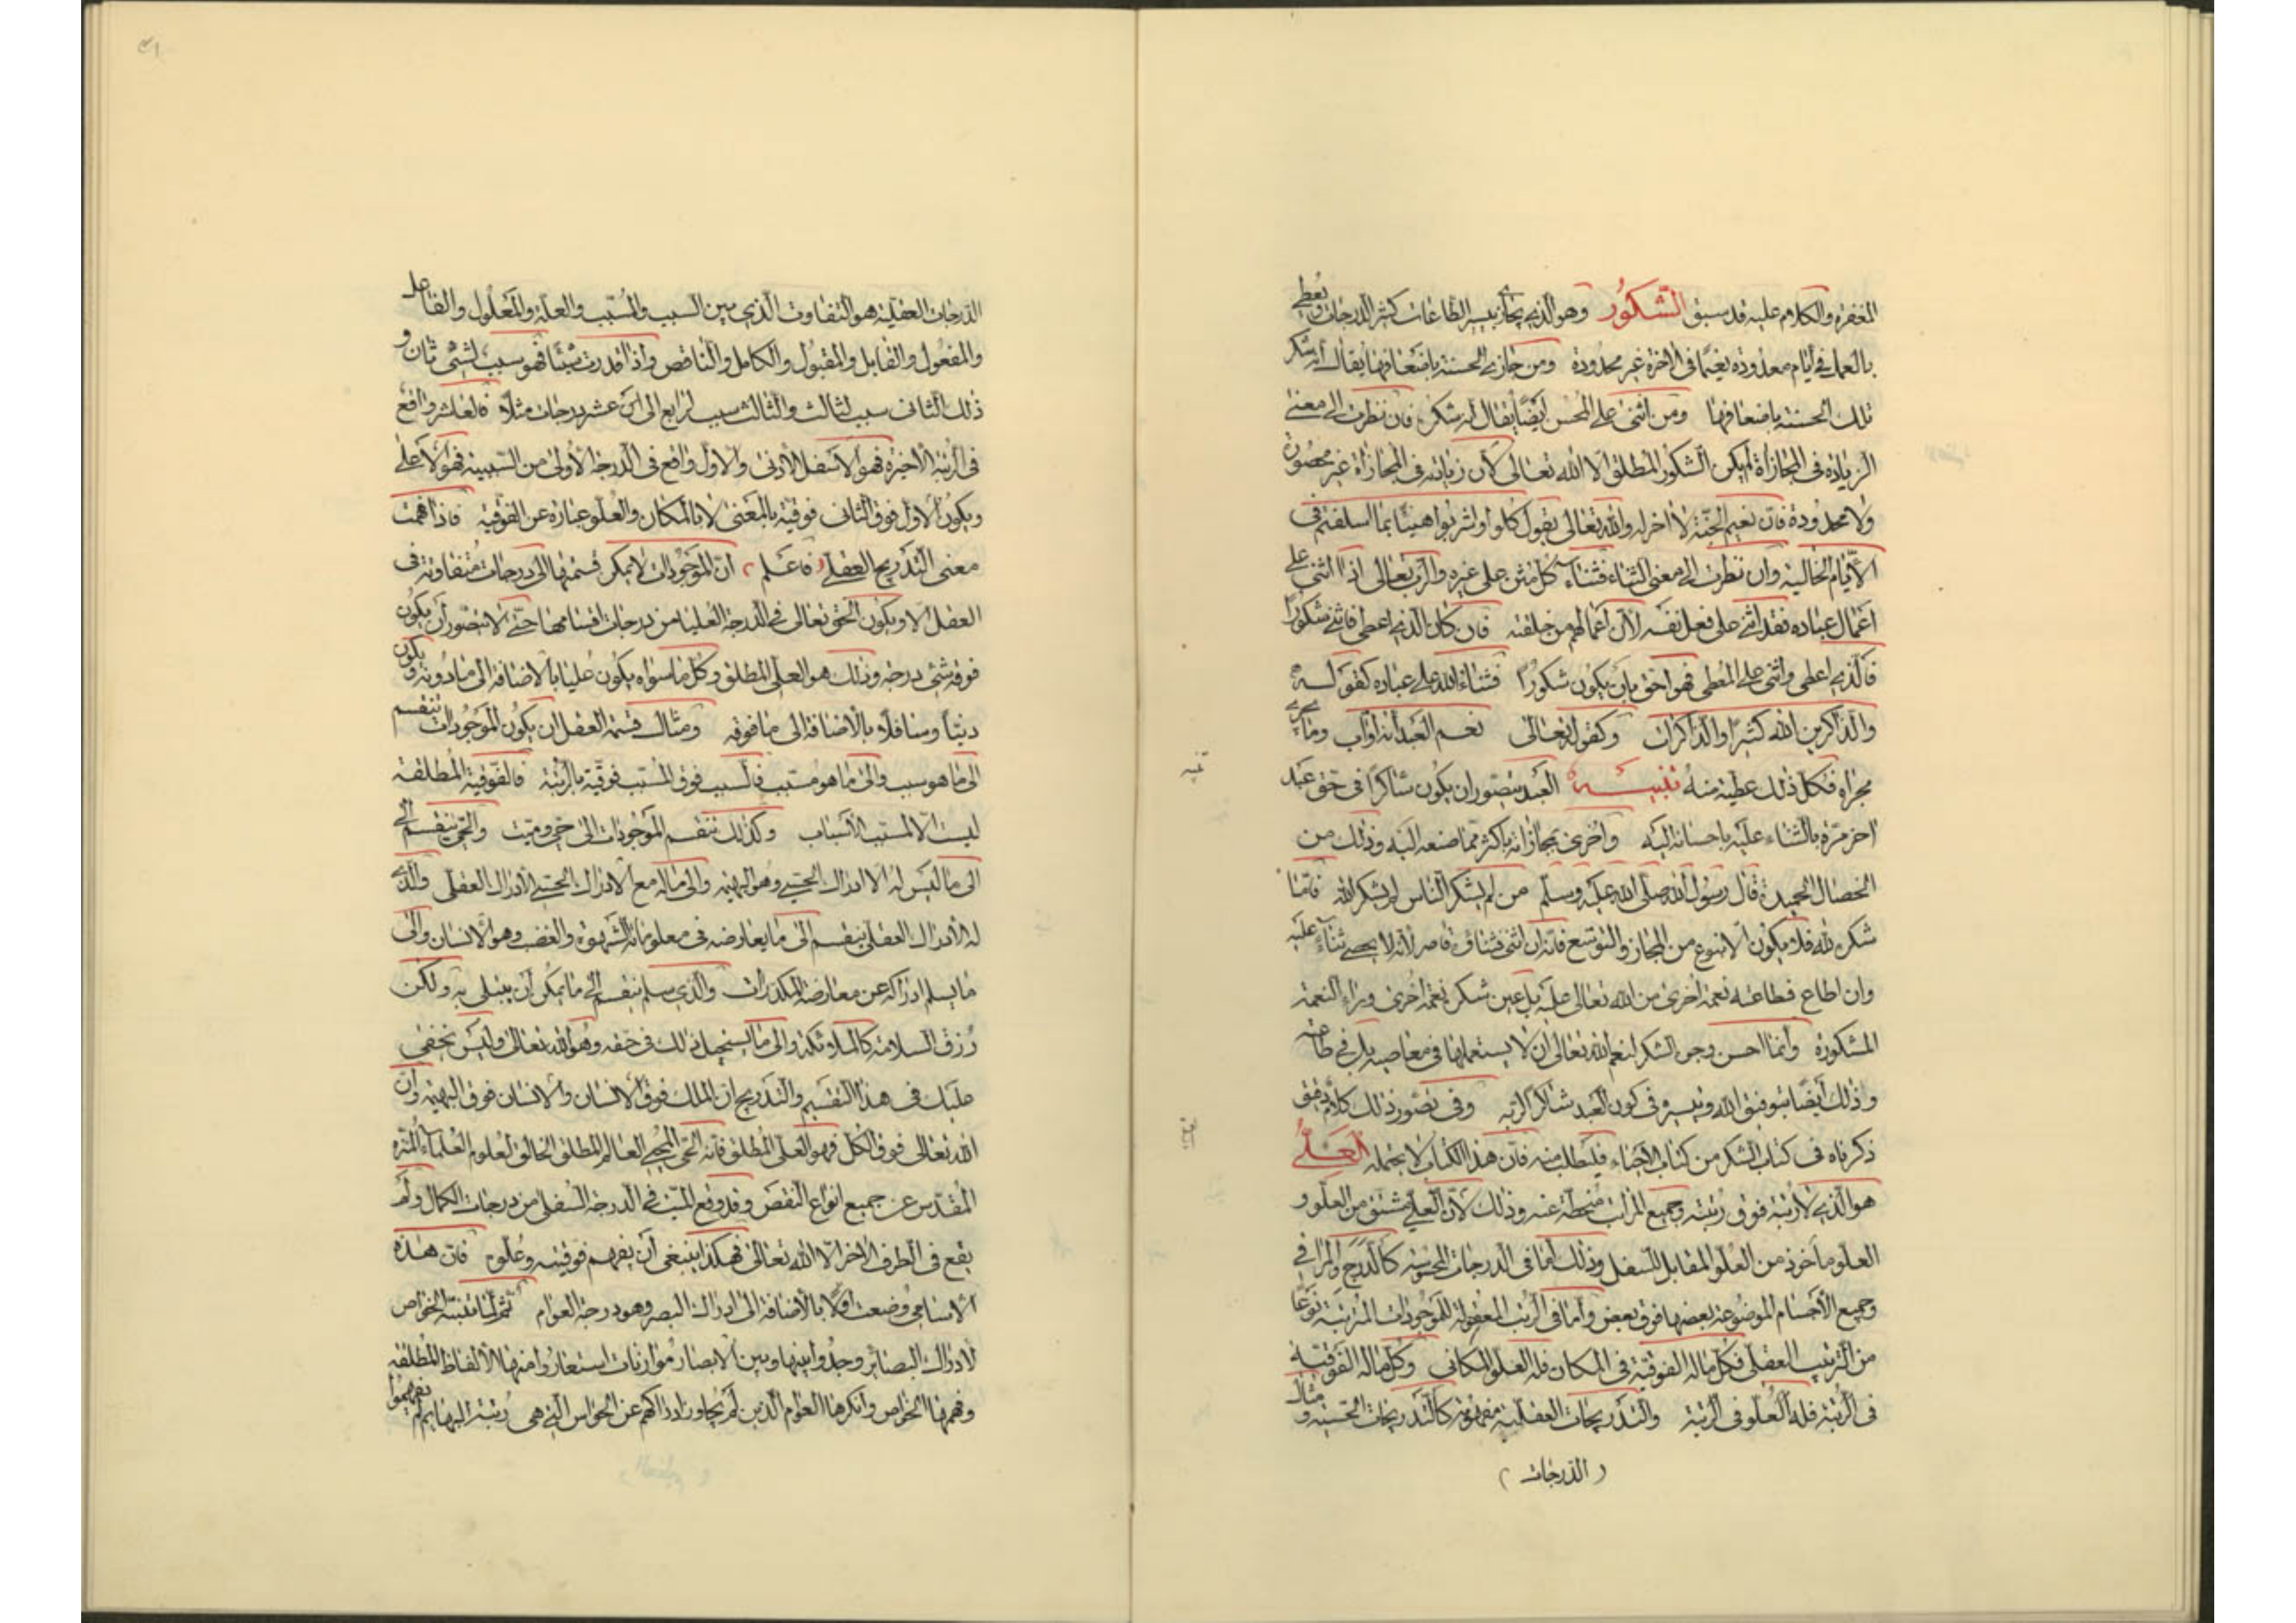 المغفرة والكلام عليه قد سبق الشكور وهو الذي يجازي بيسير الطاعات كثير الدرجات ويعطي
بالعمل في أيام معدودة نعيما في الآخرة غير محدودة ومن جازى الحسنة باضعافها يقال أنه شكر
تلك الحسنة باضعافها ومن أثنى على المحسن أيضا يقال له شكر فان نظرت الى معنى
الزيادة في المجازاة لم يكن الشكور المطلق الا الله تعالى لأن زيادته في المجازاة غير محصورة
ولا محدودة فان نعيم الجنة لا آخر له والله تعالى يقول كلوا واشربوا هنيئا بما اسلفتم في
الأيام الخالية وان نظرت الى معنى الثناء فثناء كل مثن على غيره والرب تعالى اذا اثنى على
اعمال عباده فقد اثنى على فعل نفسه لأن أعمالهم من خلقته فان كان الذي اعطي فاثنى شكورا
فالذي اعطى واثنى على المعطي فهو احق بان يكون شكورا فثناء الله على عباده كقوله
والذاكرين الله كثيرا والذاكرات وكقوله تعالى نعم العبد انه أواب وما يجري
مجراه فكل ذلك عطية منه تنبيه العبد يتصور ان يكون شاكرا في حق عبد
آخر مرة بالثناء عليه باحسانه اليه وأخرى بمجازاته باكثر مما صنعه اليه وذلك من
الخصال الحميدة قال رسول الله صلى الله عليه وسلم من لم يشكر الناس لم يشكر الله فاما
شكره لله فلا يكون الا بنوع من المجاز والتوسع فانه ان اثنى فثناؤه قاصر لأنه لا يحصي ثناء عليه
وان اطاع فطاعته نعمة أخرى من الله تعالى عليه بل عين شكره نعمة أخرى وراء النعمة
المشكورة وانما احسن وجوه الشكر لنعم الله تعالى ان لا يستعملها في معاصيه بل في طاعته
وذلك أيضا بتوفيق الله وتيسيره في كون العبد شاكرا لربه وفي تصور ذلك كلام دقيق
ذكرناه في كتاب الشكر من كتاب الاحياء فليطلب منه فان هذا الكتاب لا يحتمله العلي
هو الذي لا رتبة فوق رتبته وجميع المراتب منحطة عنه وذلك لأن العلي مشتق من العلو و
العلو مأخوذ من العلو المقابل للسفل وذلك أما في الدرجات المحسوسة كالدرج والمراقي
وجميع الأجسام الموضوعة بعضها فوق بعض وأما في الرتب المعقولة للموجودات المرتبة نوعا
من الترتيب العقلي فكل ماله الفوقية في المكان فله العلو المكاني وكل ماله الفوقية
في الرتبة فله العلو في الرتبة والتدريجات العقلية مفهومة كالتدريجات الحسية ومثال
( الدرجات )
الدرجات العقلية هو التفاوت الذي بين السبب والمسبب والعلة والمعلول والفاعل
والمفعول والقابل والمقبول والكامل والناقص واذا قدرت شيئا فهو سبب لشئ ثان و
ذلك الثاني سبب لثالث والثالث سبب لرابع الى عشر درجات مثلا فالعاشر واقع
في الرتبة الأخيرة فهو الاسفل الأدنى والاول واقع في الدرجة الأولى من السببية فهو الأعلى
ويكون الاول فوق الثاني فوقية بالمعنى لا بالمكان والعلو عبارة عن الفوقية فاذا فهمت
معنى التدريج العقلي ( فاعلم ) ان الموجودات لا يمكن قسمتها الى درجات متفاوتة في
العقل الا ويكون الحق تعالى في الدرجة العليا من درجات اقسامها حتى لا يتصور أن يكون
فوقه شئ درجة وذلك هو العلي المطلق وكل ما سواه يكون عليا بالاضافة الى ما دونه ويكون
دنيا وسافلا بالاضافة الى ما فوقه ومثال قسمة العقل ان يكون الموجودات تنقسم
الى ما هو سبب والى ما هو مسبب فالسبب فوق المسبب فوقية بالرتبة فالفوقية المطلقة
ليست الا لمسبب الأسباب وكذلك تنقسم الموجودات الى حي وميت والحي ينقسم الى
الى ما ليس له الا ادراك الحسي وهو البهيمة والى ماله مع الادراك الحسي الادراك العقلي والذي
له الادراك العقلي ينقسم الى ما يعارضه في معلوماته الشهوة والغضب وهو الانسان والى
ما يسلم ادراكه عن معارضة المكدرات والذي يسلم ينقسم الى ما يمكن أن يبتلى به ولكن
رزق السلامة كالملائكة والى ما يستحيل ذلك في حقه وهو الله تعالى وليس تخفى
عليك في هذا التقسيم والتدريج ان الملك فوق الانسان والانسان فوق البهيمة وان
الله تعالى فوق الكل فهو العلي المطلق فانه الحي المحيي العالم المطلق الخالق لعلوم العلماء المنزه
المقدس عن جميع انواع النقص وقد وقع الميت في الدرجة السفلى من درجات الكمال ولم
يقع في الطرف الآخر الا الله تعالى فهكذا ينبغي أن يفهم فوقيته وعلوه فان هذه
الاسامي وضعت أولا بالاضافة الى ادراك البصر وهو درجة العوام ثم لما تنبه الخواص
لادراك البصائر وجدوا بينها وبين الابصار موازنات استعاروا منها الألفاظ المطلقة
وفهمها الخواص وانكرها العوام الذين لم يتجاوز ادراكهم عن الحواس التي هي رتبة البهايم فلم يفهموا